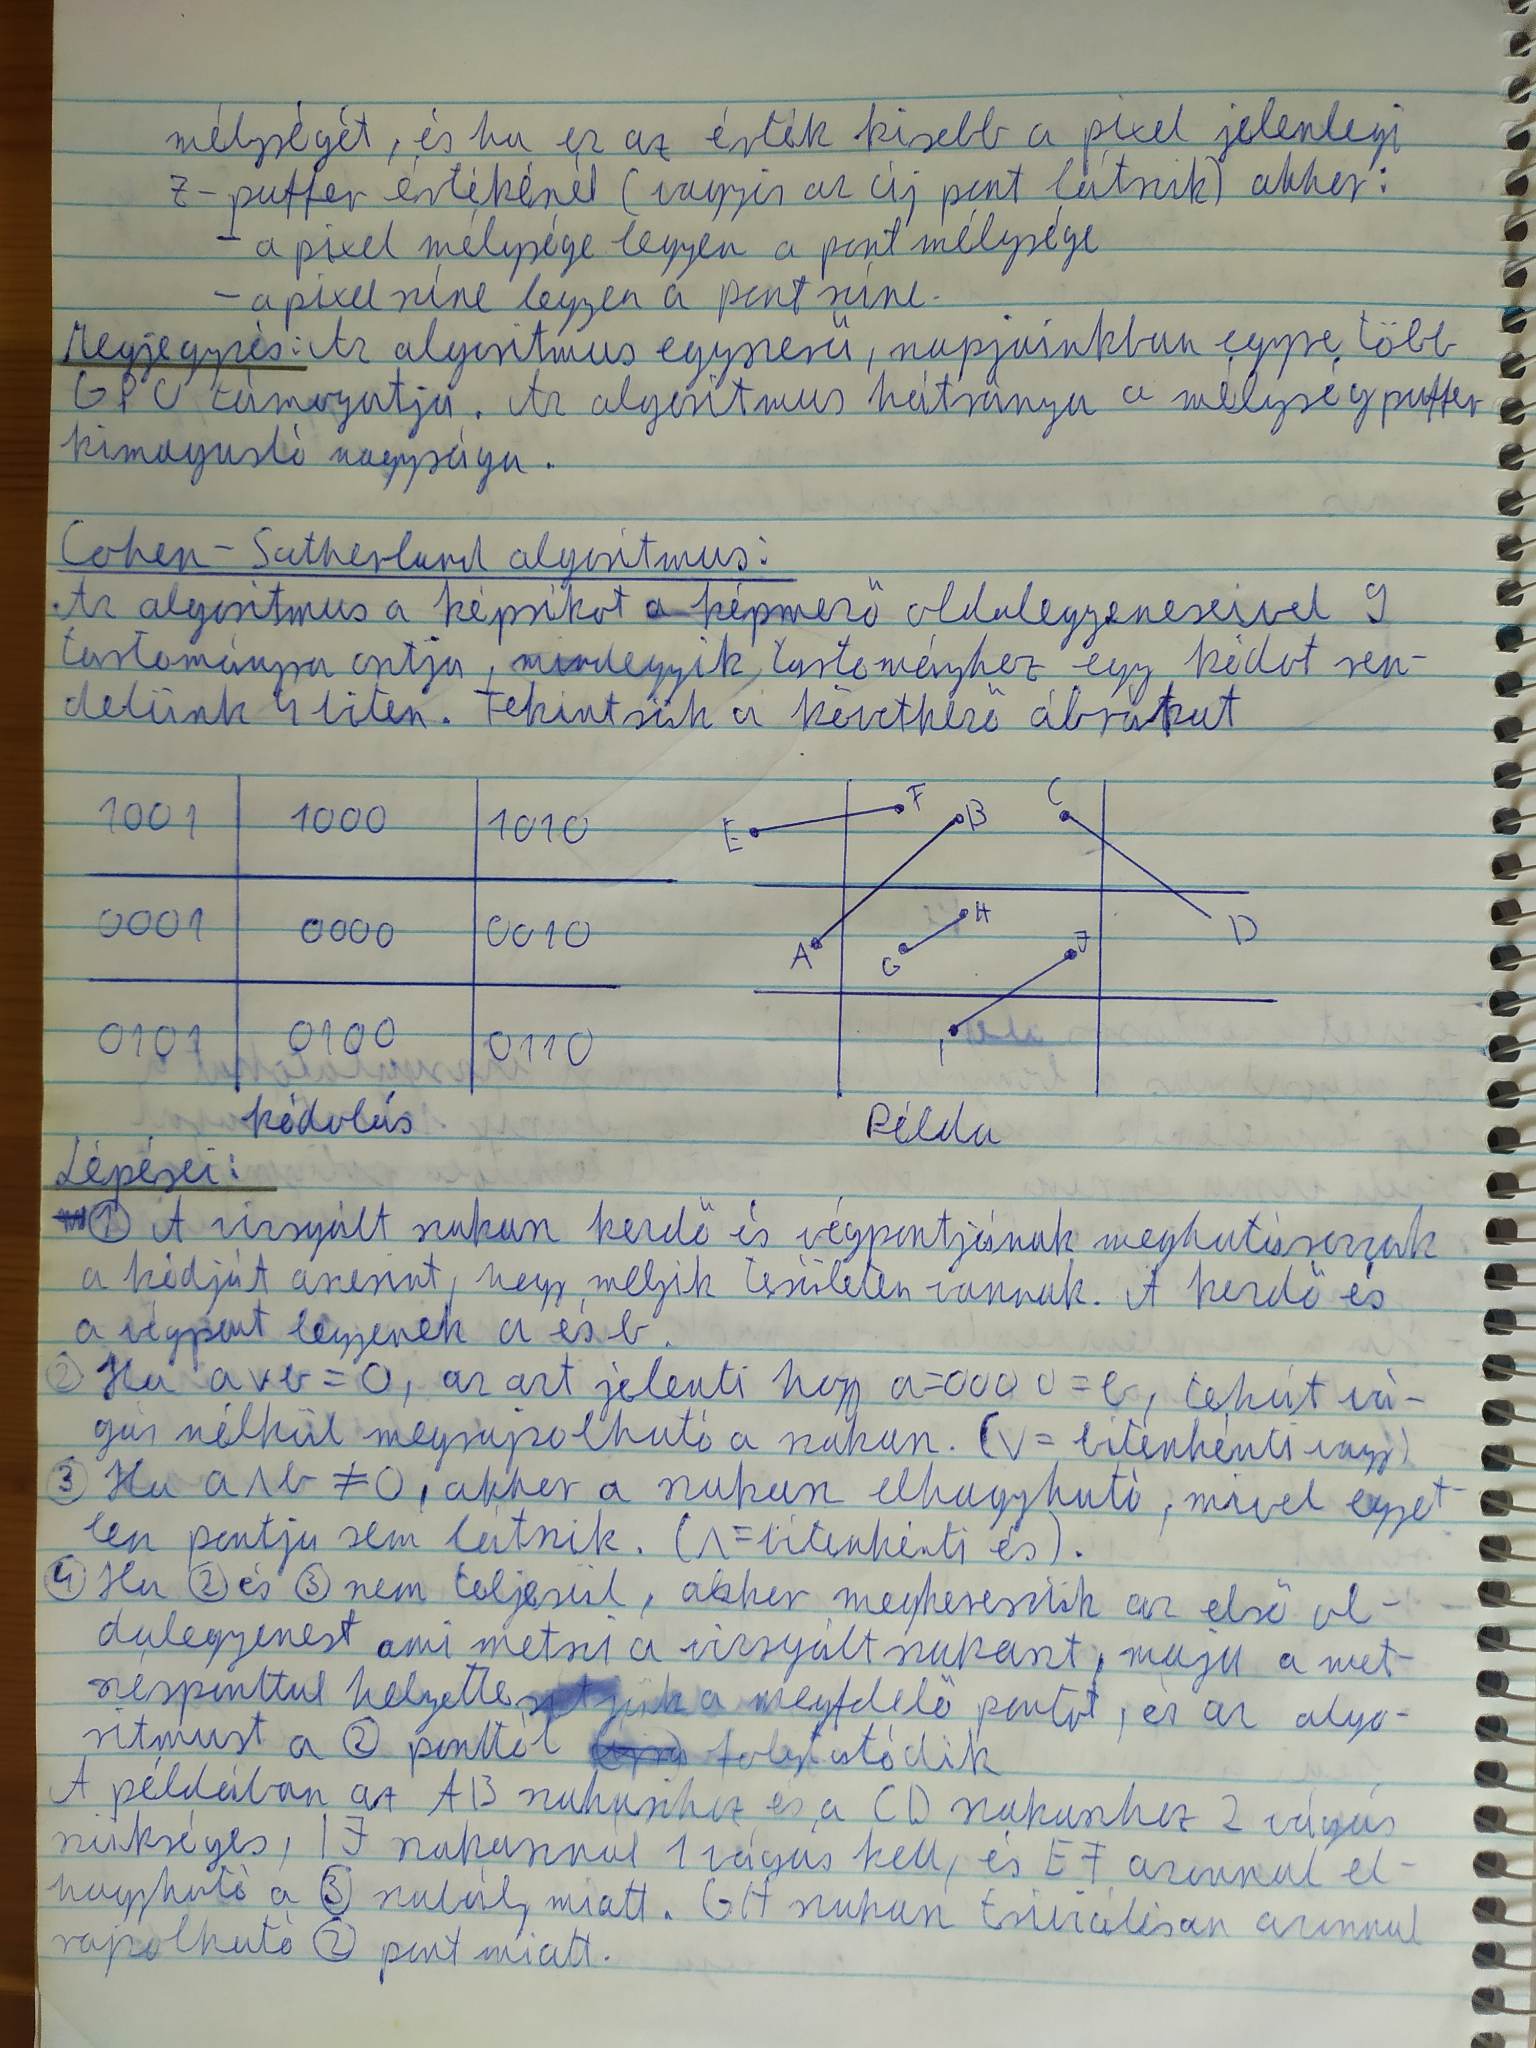 mélységét, és ha ez az érték kisebb a pixel jelenlegi
Z-puffer értékénél (vagyis az új pont látszik) akkor:
- a pixel mélysége legyen a pont mélysége
- a pixel színe legyen a pont színe.
Megjegyzés: Az algoritmus egyszerű, napjainkban egyre több
GPU támogatja. Az algoritmus hátránya a mélységpuffer
kimagasló nagysága.
Cohen-Sutherland algoritmus:
Az algoritmus a képsíkot a képmező oldalegyeneseivel 9
tartományra osztja, mindegyik tartományhoz egy kódot ren-
delünk 4 biten. Tekintsük a következő ábrákat
1001 1000 1010
0001 0000 0010
0101 0100 0110
kódolás
E F B C
A G H J D
I
Példa
Lépései:
① A vizsgált szakasz kezdő és végpontjának meghatározzuk
a kódját aszerint, hogy melyik területen vannak. A kezdő és
a végpont legyenek a és b.
② Ha a∨b=0, az azt jelenti hogy a=0000=b, tehát vá-
gás nélkül megrajzolható a szakasz. (∨= bitenkénti vagy)
③ Ha a∧b ≠0, akkor a szakasz elhagyható, mivel egyet-
len pontja sem látszik. (∧=bitenkénti és).
④ Ha ② és ③ nem teljesül, akkor megkeressük az első ol-
dalegyenest ami metszi a vizsgált szakaszt, majd a met-
szésponttal helyettesítjük a megfelelő pontot, és az algo-
ritmust a ② ponttól folytatódik
A példában az AB szakaszhoz és a CD szakaszhoz 2 vágás
szükséges, IJ szakasznál 1 vágás kell, és EF azonnal el-
hagyható a ③ szabály miatt. GH szakasz triviálisan azonnal
rajzolható ② pont miatt.